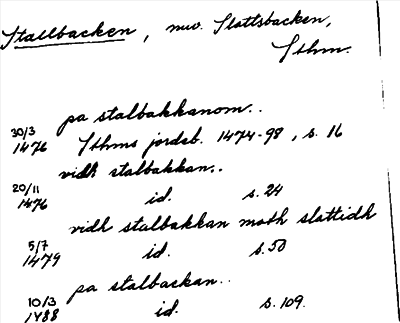 Stallbacken, nuv. Slottsbacken,
Sthm.
pa stalbakkanom..
30/3
1476 Sthms jordeb. 1474-98, s. 16
vidh stalbakkan..
20/11
1476 id. s. 24
vidh stalbakkan moth slattidh
5/7
1479 id. s. 50
pa stalbackan..
10/3
1488 id. s. 109.